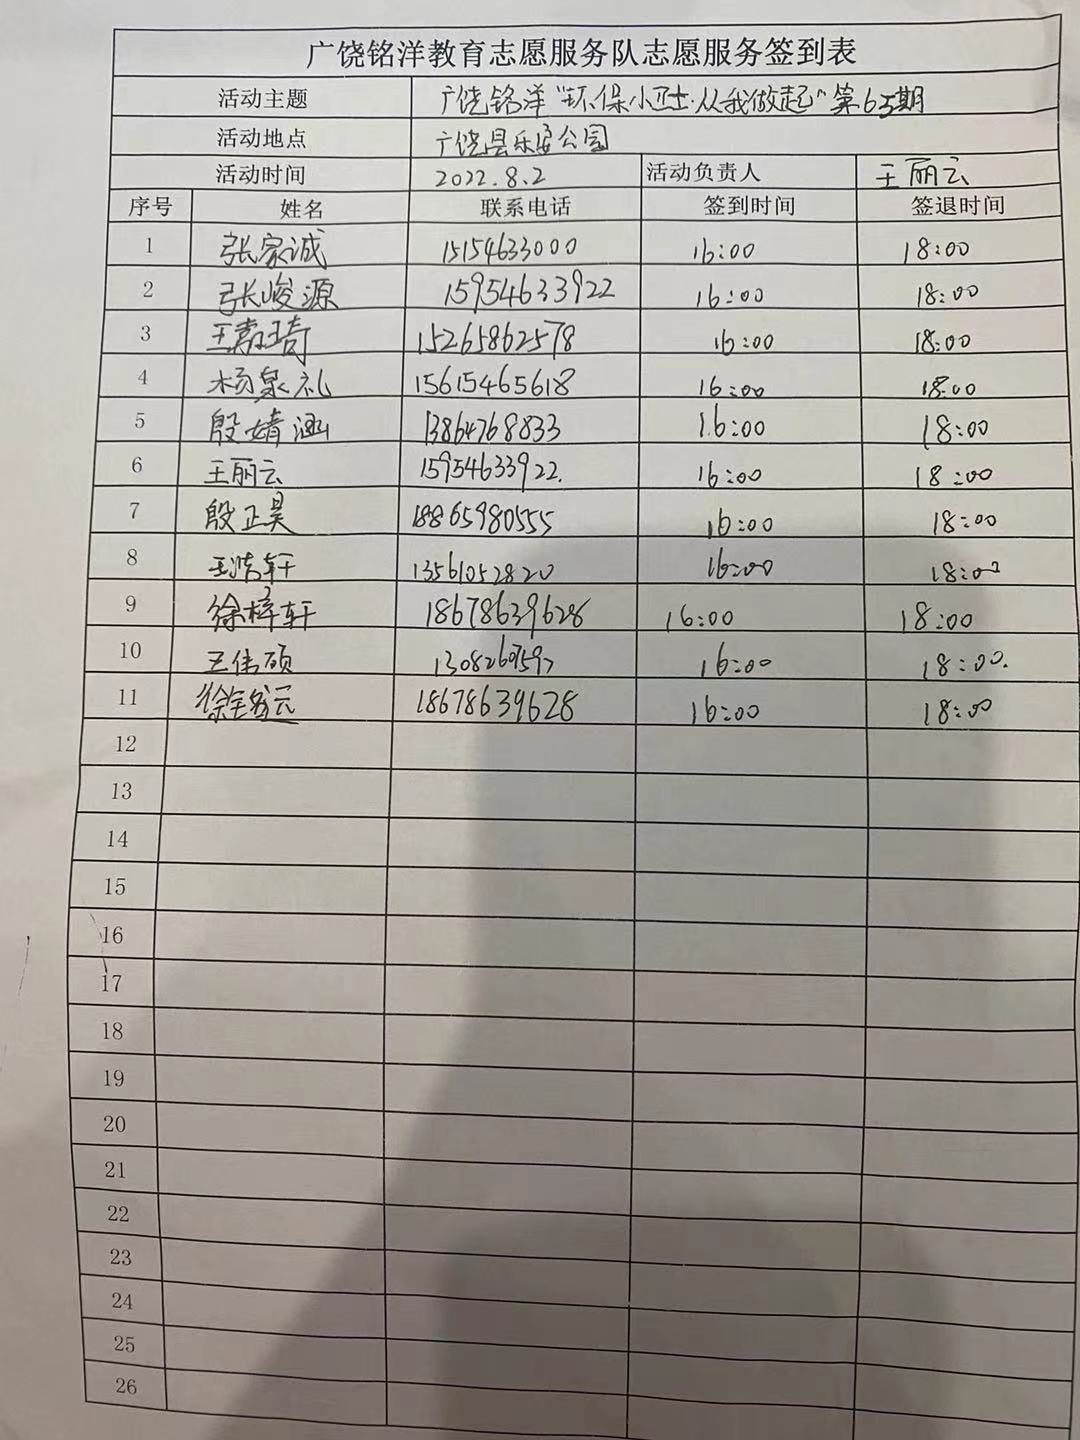 广饶铭洋教育志愿服务队志愿服务签到表
活动主题 广饶铭洋"环保小卫士·从我做起"第65期
活动地点 广饶县乐安公园
活动时间 2022.8.2 活动负责人 王丽云
序号 姓名 联系电话 签到时间 签退时间
1 张家诚 15154633000 16:00 18:00
2 张峻源 15954633922 16:00 18:00
3 王嘉琦 15265862578 16:00 18:00
4 杨泉礼 15615465618 16:00 18:00
5 殷婧涵 13864768833 16:00 18:00
6 王丽云 15954633922. 16:00 18:00
7 殷正昊 18865980555 16:00 18:00
8 王浩轩 13561052820 16:00 18:00
9 徐梓轩 18678639628 16:00 18:00
10 王伟硕 16:00 18:00.
11 18678639628 16:00 18:00
12
13
14
15
16
17
18
19
20
21
22
23
24
25
26